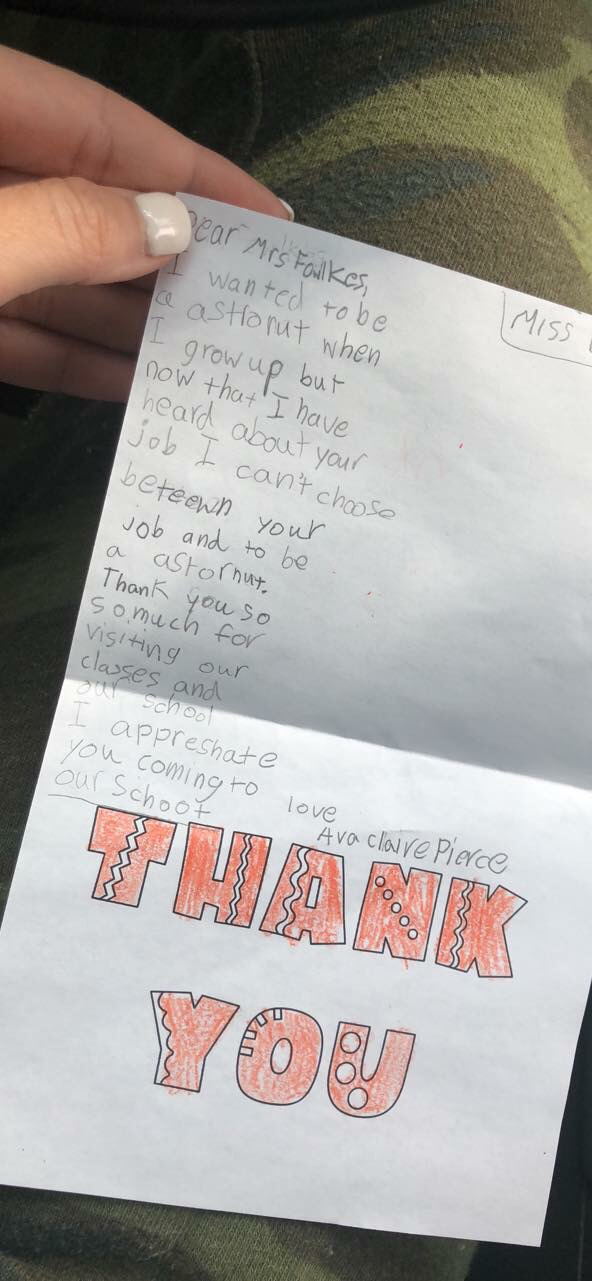 Dear Mrs Foulkes,
I wanted to be
a astronut when
I grow up but
now that I have
heard about your
job I can't choose
beteewn your
job and to be
a astornut.
Thank you so
so much for
visiting our
classes and
our school
I appreshate
you coming to
our School
love
Ava claire Pierce
MISS
THANK
YOU